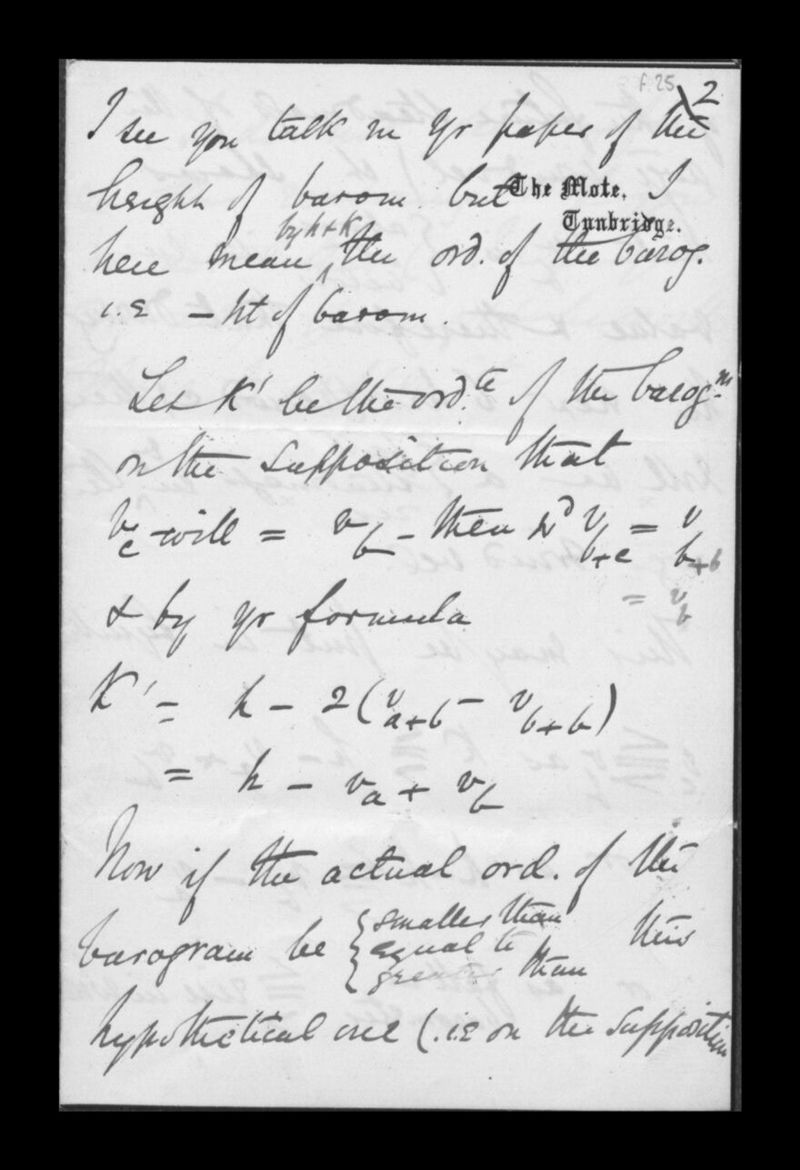 f.25 2
I see you talk in yr paper of the
height of barom. but I
The Mote,
Tunbridge.
by h & K
here mean, the ord. of the barog.
i.e - ht of barom.
Let K' be the ord.te of the barog.m
on the supposition that
vc will = vb - then wd vb+c = vb+b
= vb
& by yr formula
K' = h - 2(va+b - vb+b)
= h - va + vb
Now if the actual ord. of the
barogram be { smaller than
equal to
greater than this
hypothetical one (.i.e on the supposition